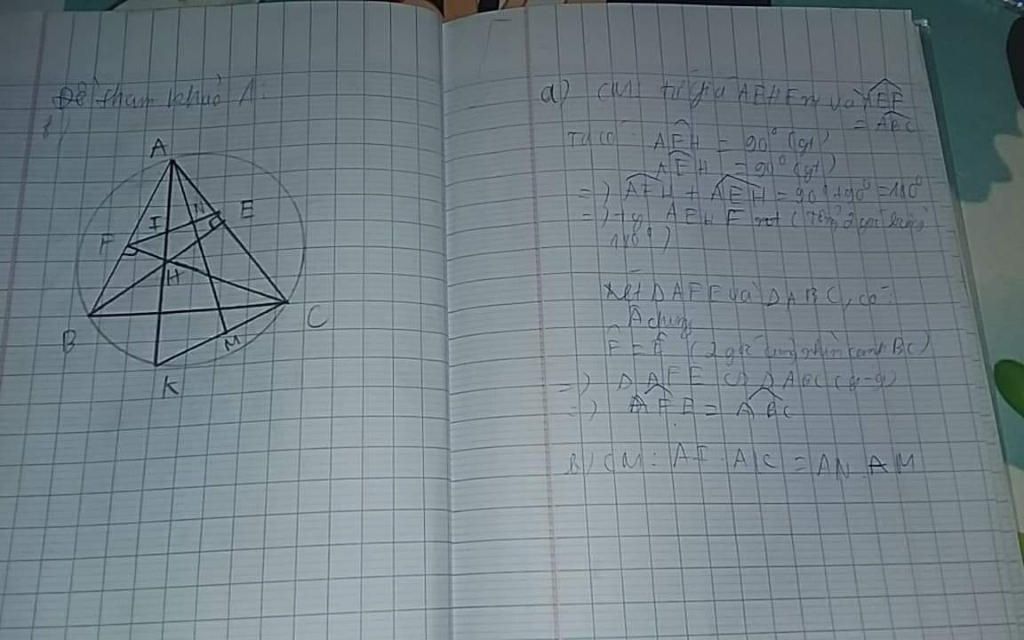 Đề tham khảo A:
1)
A
E
I
N
F
H
B
C
M
K
a) CM tứ giá AEHF nt và AEF
= ABC
Ta có: AFH = 90° (gt)
AEH = 90° (gt)
=> AFH + AEH = 90° + 90° = 180°
=> tg AEHF nt (Tổng 2 góc bằng
180°)
Xét DAFE và DABC, có:
A chung
=> DAFE DABC (g-g)
=> AFE = ABC
B) CM: AF . AC = AN . AM